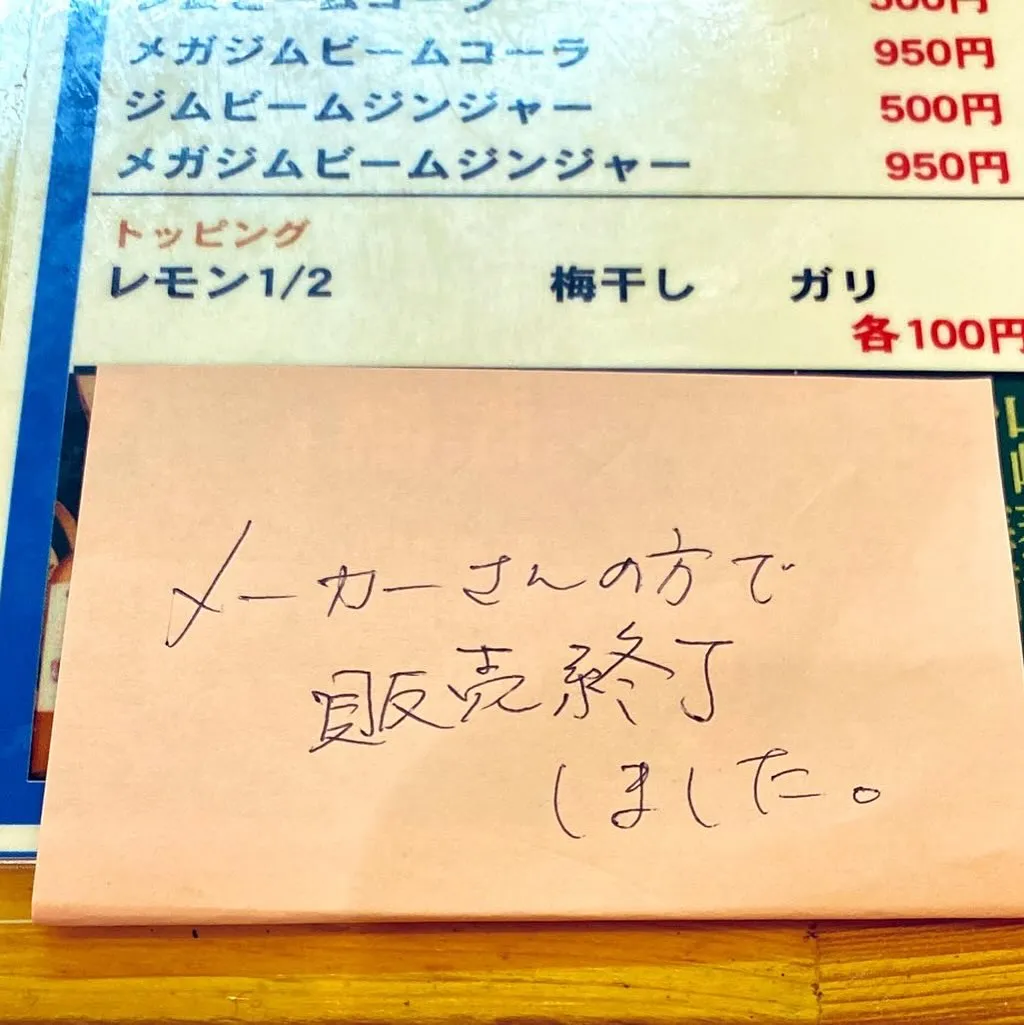 ジムビームコーラ 500円
メガジムビームコーラ 950円
ジムビームジンジャー 500円
メガジムビームジンジャー 950円
トッピング
レモン1/2 梅干し ガリ
各100円
メーカーさんの方で
販売終了
しました。